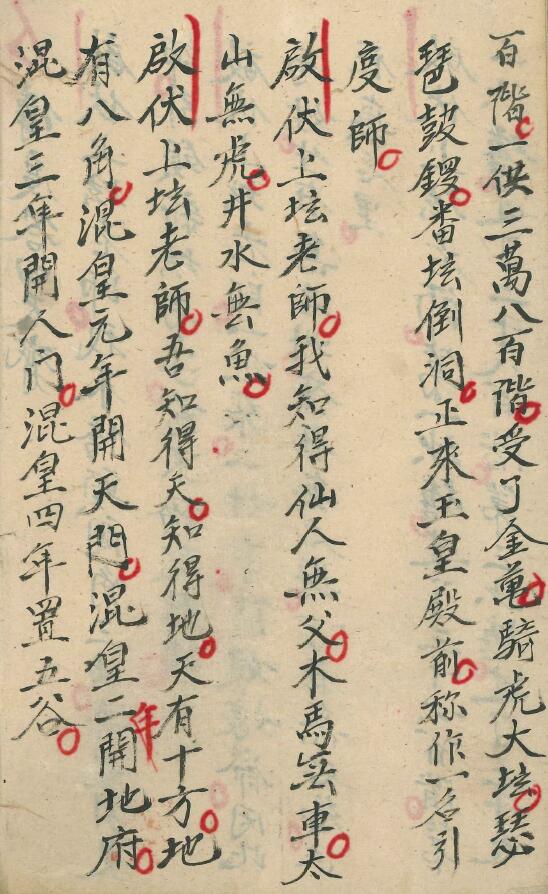 百階一供三萬八百階受了金鸞騎虎大坛瑟
琶鼓鑼番坛倒洞正來玉皇殿前称作一名引
度師
啟伏上坛老師我知得仙人無父木馬無車太
山無虎井水無魚
啟伏上坛老師吾知得天知得地天有十方地
有八角混皇元年開天門混皇二年開地府
混皇三年開人门混皇四年置五谷